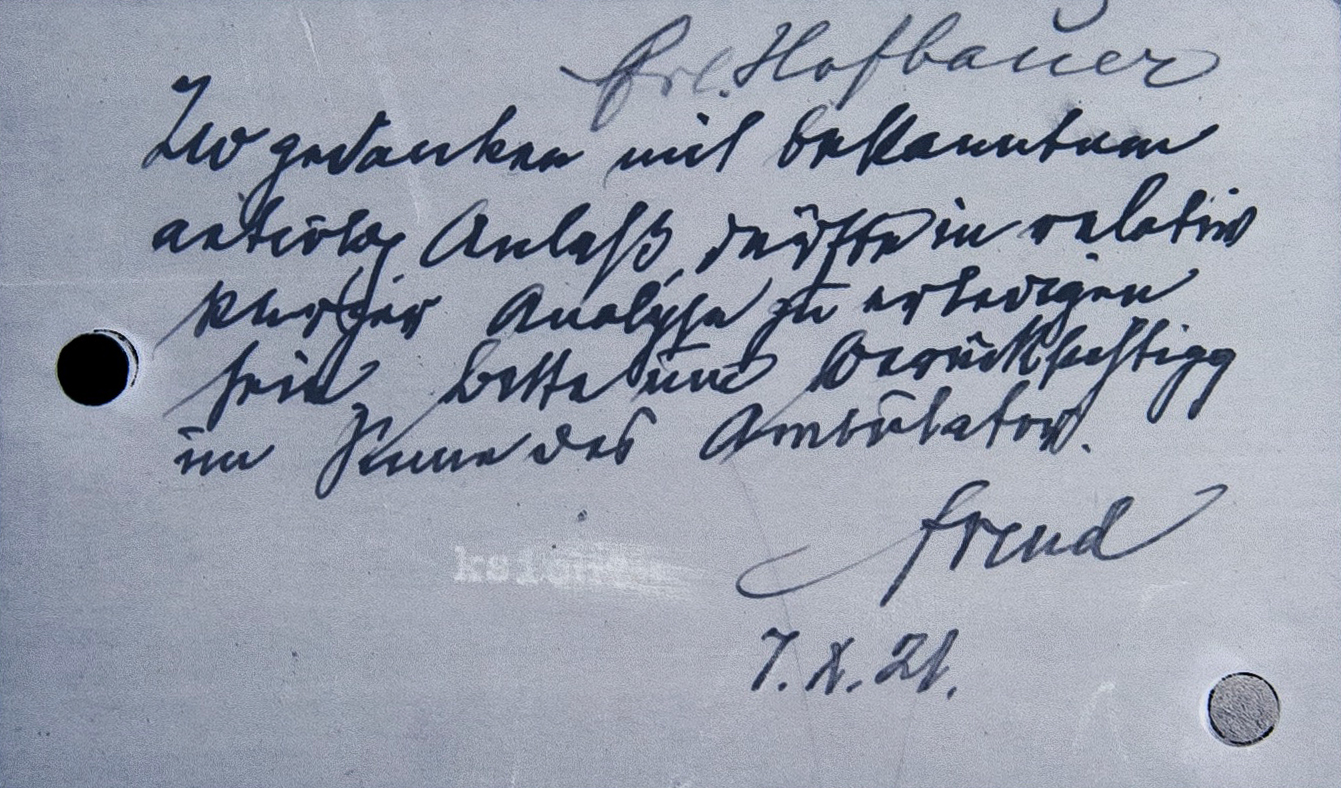 Frl. Hofbauer
Zwgedanken mit bekanntem
aktuellen Anlaß, dürfte in relativ
kurzer Analyse zu erledigen
sein, bitte um Berücksichtigg
im Sinne des Ambulator.
Freud
7.X.21.